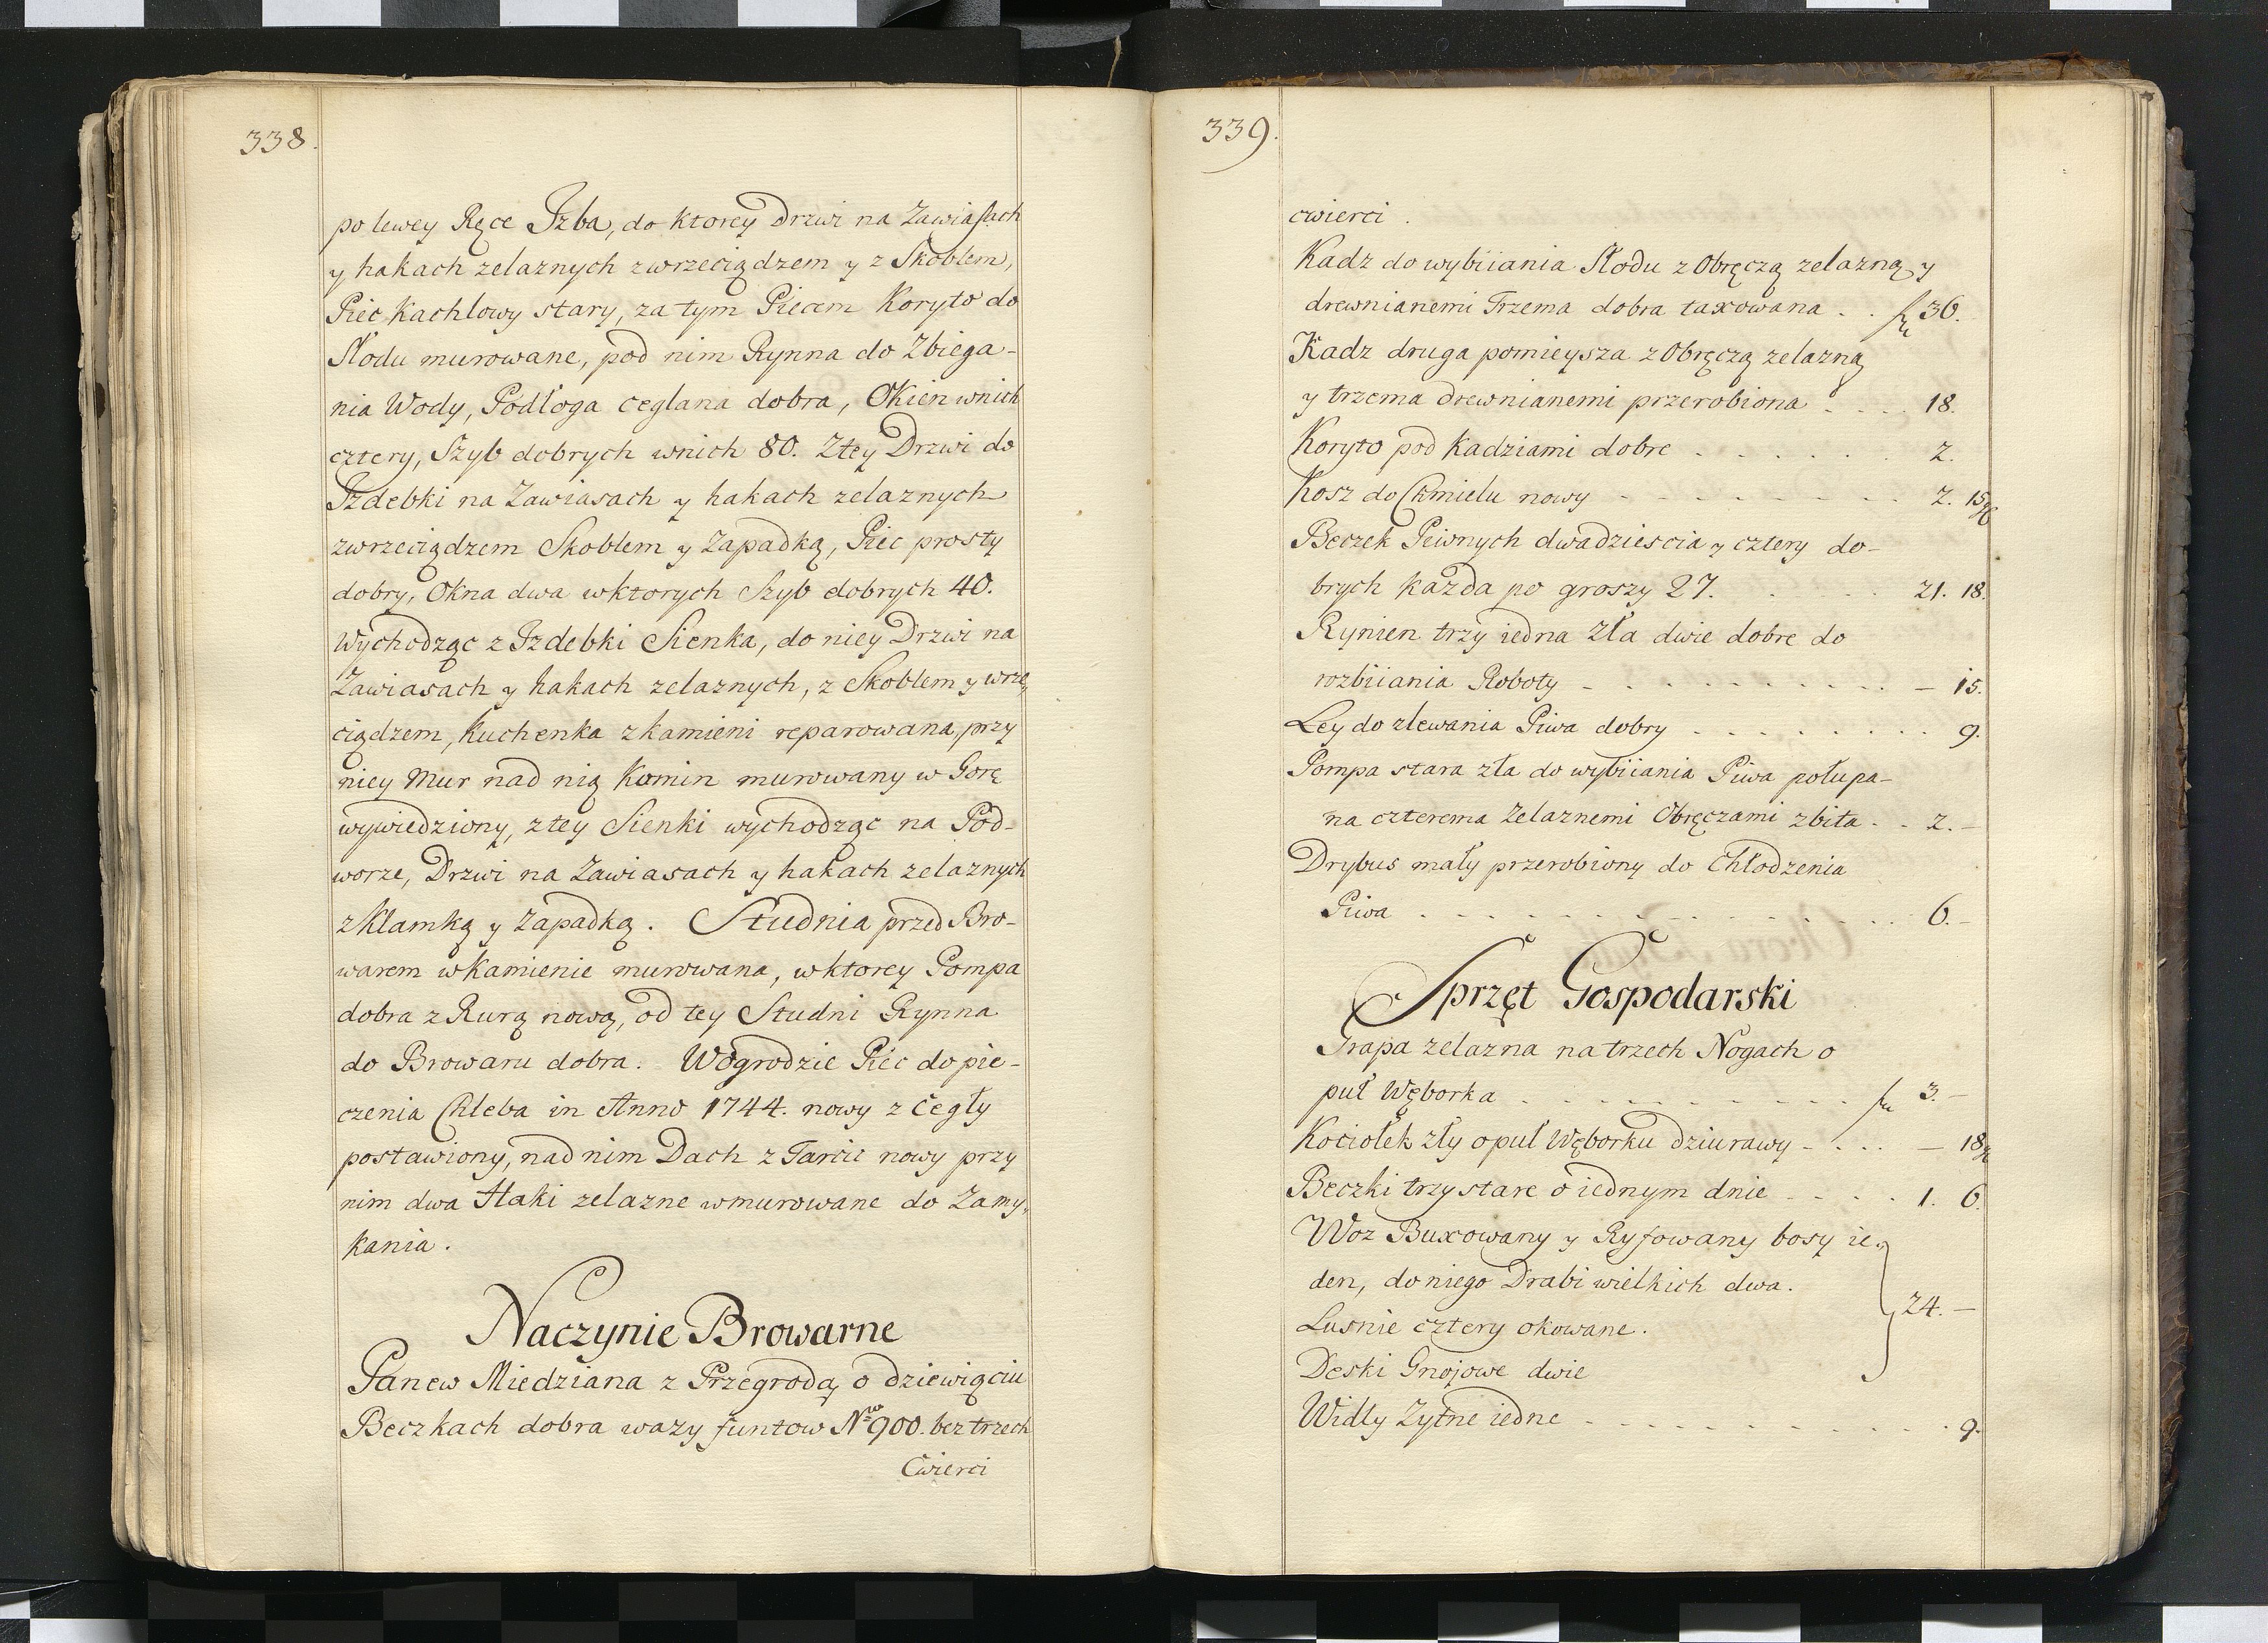 338.
po lewey Ręce Izba, do ktorey Drzwi na Zawiasach
y hakach zelaznych zwrzeciądzem y z Skoblem,
Piec Kachlowy stary, za tym Piecem Koryto do
Słodu murowane, pod nim Rynna do Zbiega-
nia Wody, Podłoga ceglana dobra, Okien wnich
cztery, Szyb dobrych wnich 80. Ztey Drzwi do
Izdebki na Zawiasach y hakach zelaznych
zwrzeciądzem Skoblem y Zapadką, Piec prosty
dobry, Okna dwa wktorych Szyb dobrych 40.
Wychodząc z Izdebki Sienka, do niey Drzwi na
Zawiasach y hakach zelaznych, z Skoblem y wrze,
ciądzem, Kuchenka z kamieni reparowana, przy
niey Mur nad nią Komin murowany w Gorę
wywiedziony, z tey Sienki wychodząc na Pod-
worze, Drzwi na Zawiasach y hakach zelaznych
z Klamką y Zapadką. Studnia przed Bro-
warem wKamienie murowana, wktorey Pompa
dobra z Rurą nową, od tey Studni Rynna
do Browaru dobra. WOgrodzie Piec do pie-
czenia Chleba in Anno 1744. nowy z Cegły
postawiony, nad nim Dach z Tarcic nowy przy
nim dwa Haki zelazne wmurowane do Zamy,
kania.
Naczynie Browarne
Panew Miedziana z Przegrodą o dziewiąciu
Beczkach dobra wazy funtow Nro 900. bez trzech
Cwierci
339.
cwierci.
Kadz do wybiiania Słodu z Obręczą zelazną y
drewnianemi Trzema dobra taxowana . . fu 36.
Kadz druga pomieysza z Obręczą zelazną
y trzema drewnianemi przerobiona . . . . 18.
Koryto pod Kadziami dobre . . . . . . 2.
Kosz do Chmielu nowy - - - - - - - - - 2. 15
Beczek Peiwnych dwadziescia y cztery do-
brych kazda po groszy 27. . . . . . 21. 18.
Rynien trzy iedna zła dwie dobre do
rozbiiania Roboty - . . . . . . . . . - 15.
Ley do zlewania Piwa dobry . . . . . . . . . 9.
Pompa stara zła do wybiiania Piwa połupa-
na czterema Zelaznemi Obręczami zbita . . 2. -
Drybus mały przerobiony do Chłodzenia
Piwa . . . . . . . . . . . . . . . . 6. -
Sprzęt Gospodarski
Grapa zelazna na trzech Nogach o
puł Węborka . . . . . . . . . . . fu 3. -
Kociołek zły o puł Węborku dziurawy - . . . - 18
Beczki trzy stare o iednym dnie - . . . . 1. 6.
Woz Buxowany y Ryfowany bosy ie,
den, do niego Drabi wielkich dwa.
24. -
Lusnie cztery okowane.
Deski Gnojowe dwie
Widły Zytne iedne - - - - - - - - . . . 9.